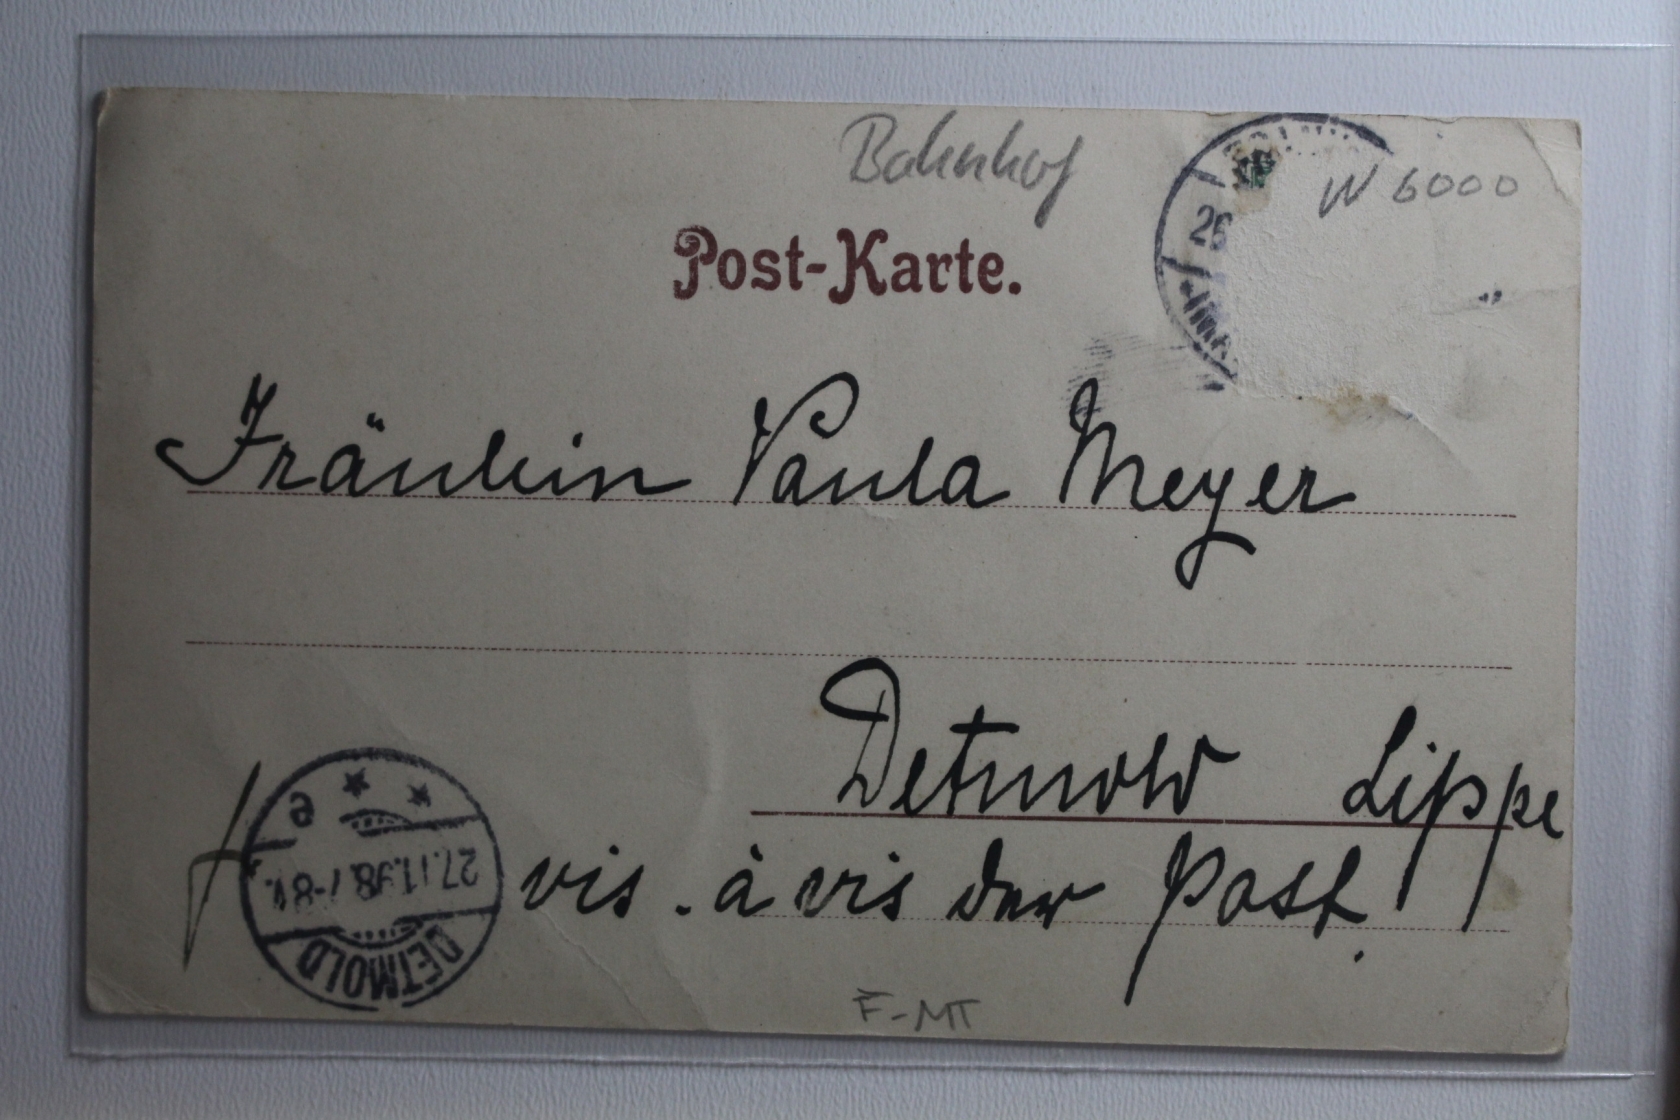 Bahnhof
W 6000
26
Post-Karte.
Fräulein Paula Meyer
Detmold Lippe
vis . à vis der Post.
DETMOLD
27.11.98.7-8V.
* * e
F-MT